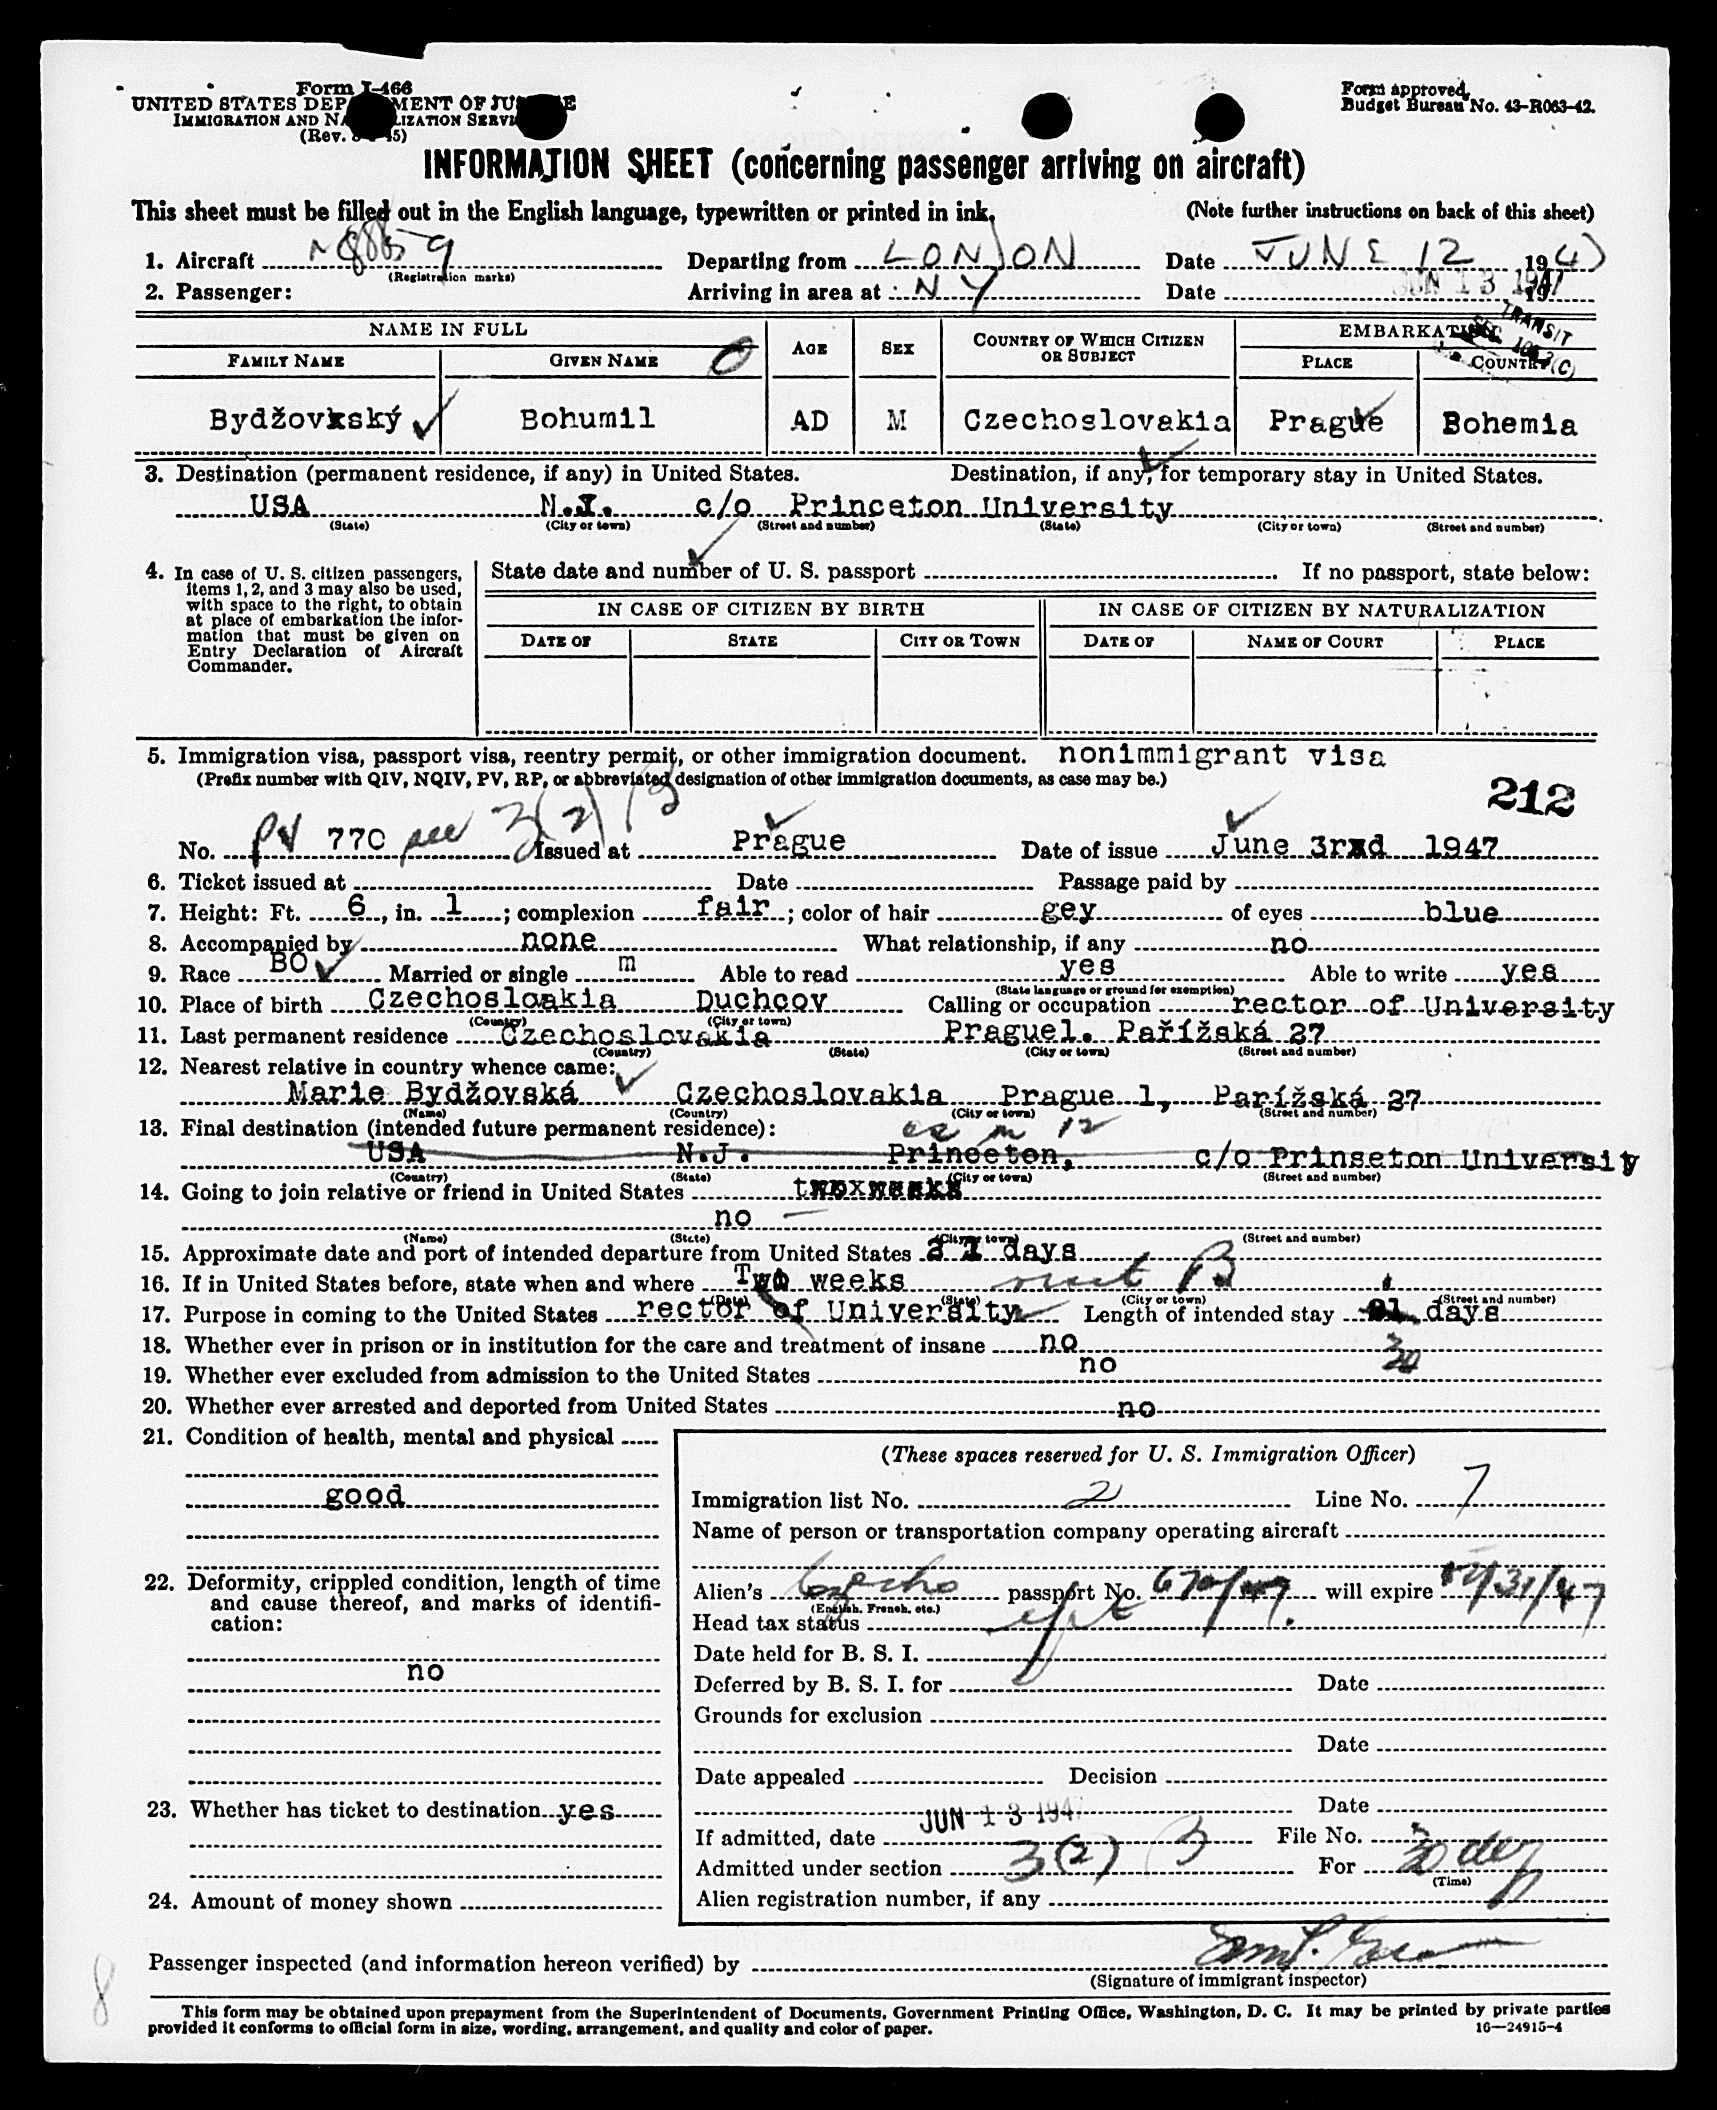 Form I-466
UNITED STATES DEPARTMENT OF JUSTICE
IMMIGRATION AND NATURALIZATION SERVICE
(Rev. 45)
Form approved.
Budget Bureau No. 43-R063-42.
INFORMATION SHEET (concerning passenger arriving on aircraft)
This sheet must be filled out in the English language, typewritten or printed in ink. (Note further instructions on back of this sheet)
1. Aircraft Departing from LONDON Date JUNE 12 1947
(Registration marks)
2. Passenger: Arriving in area at NY Date JUN 13 1947
TRANSIT
NAME IN FULL AGE SEX COUNTRY OF WHICH CITIZEN OR SUBJECT EMBARKATION
FAMILY NAME GIVEN NAME PLACE COUNTRY
Bydžovský Bohumil AD M Czechoslovakia Prague Bohemia
3. Destination (permanent residence, if any) in United States. Destination, if any, for temporary stay in United States.
USA N.J. c/o Princeton University
(State) (City or town) (Street and number) (State) (City or town) (Street and number)
4. In case of U. S. citizen passengers, items 1, 2, and 3 may also be used, with space to the right, to obtain at place of embarkation the information that must be given on Entry Declaration of Aircraft Commander.
State date and number of U. S. passport If no passport, state below:
IN CASE OF CITIZEN BY BIRTH IN CASE OF CITIZEN BY NATURALIZATION
DATE OF STATE CITY OR TOWN DATE OF NAME OF COURT PLACE
5. Immigration visa, passport visa, reentry permit, or other immigration document. nonimmigrant visa
(Prefix number with QIV, NQIV, PV, RP, or abbreviated designation of other immigration documents, as case may be.)
212
No. PV 770 sec 3(2) B Issued at Prague Date of issue June 3rxd 1947
6. Ticket issued at Date Passage paid by
7. Height: Ft. 6, in. 1; complexion fair; color of hair gey of eyes blue
8. Accompanied by none What relationship, if any no
9. Race BO Married or single m Able to read yes Able to write yes
(State language or ground for exemption)
10. Place of birth Czechoslovakia Duchcov Calling or occupation rector of University
(Country) (City or town)
11. Last permanent residence Czechoslovakia Prague1. Pařížská 27
(Country) (State) (City or town) (Street and number)
12. Nearest relative in country whence came:
Marie Bydžovská Czechoslovakia Prague 1, Parížská 27
(Name) (Country) (City or town) (Street and number)
13. Final destination (intended future permanent residence): as in 12
USA N.J. Princeton, c/o Prinseton University
(Country) (State) (City or town) (Street and number)
14. Going to join relative or friend in United States twoxweeks
no
(Name) (State) (City or town) (Street and number)
15. Approximate date and port of intended departure from United States 21 days
16. If in United States before, state when and where Two weeks visit B
(Date) (State) (City or town) (Street and number)
17. Purpose in coming to the United States rector of University Length of intended stay 21 days
30
18. Whether ever in prison or in institution for the care and treatment of insane no
19. Whether ever excluded from admission to the United States no
20. Whether ever arrested and deported from United States no
21. Condition of health, mental and physical
good
22. Deformity, crippled condition, length of time and cause thereof, and marks of identification:
no
23. Whether has ticket to destination yes
24. Amount of money shown
(These spaces reserved for U. S. Immigration Officer)
Immigration list No. 2 Line No. 7
Name of person or transportation company operating aircraft
Alien's Czecho passport No. 670/47. will expire 12/31/47
(English, French, etc.)
Head tax status
Date held for B. S. I.
Deferred by B. S. I. for Date
Grounds for exclusion
Date
Date appealed Decision
Date
If admitted, date JUN 13 1947 File No.
Admitted under section 3(2) B For 30 days
(Time)
Alien registration number, if any
Passenger inspected (and information hereon verified) by
(Signature of immigrant inspector)
8
This form may be obtained upon prepayment from the Superintendent of Documents, Government Printing Office, Washington, D. C. It may be printed by private parties
provided it conforms to official form in size, wording, arrangement, and quality and color of paper.
16—24915-4